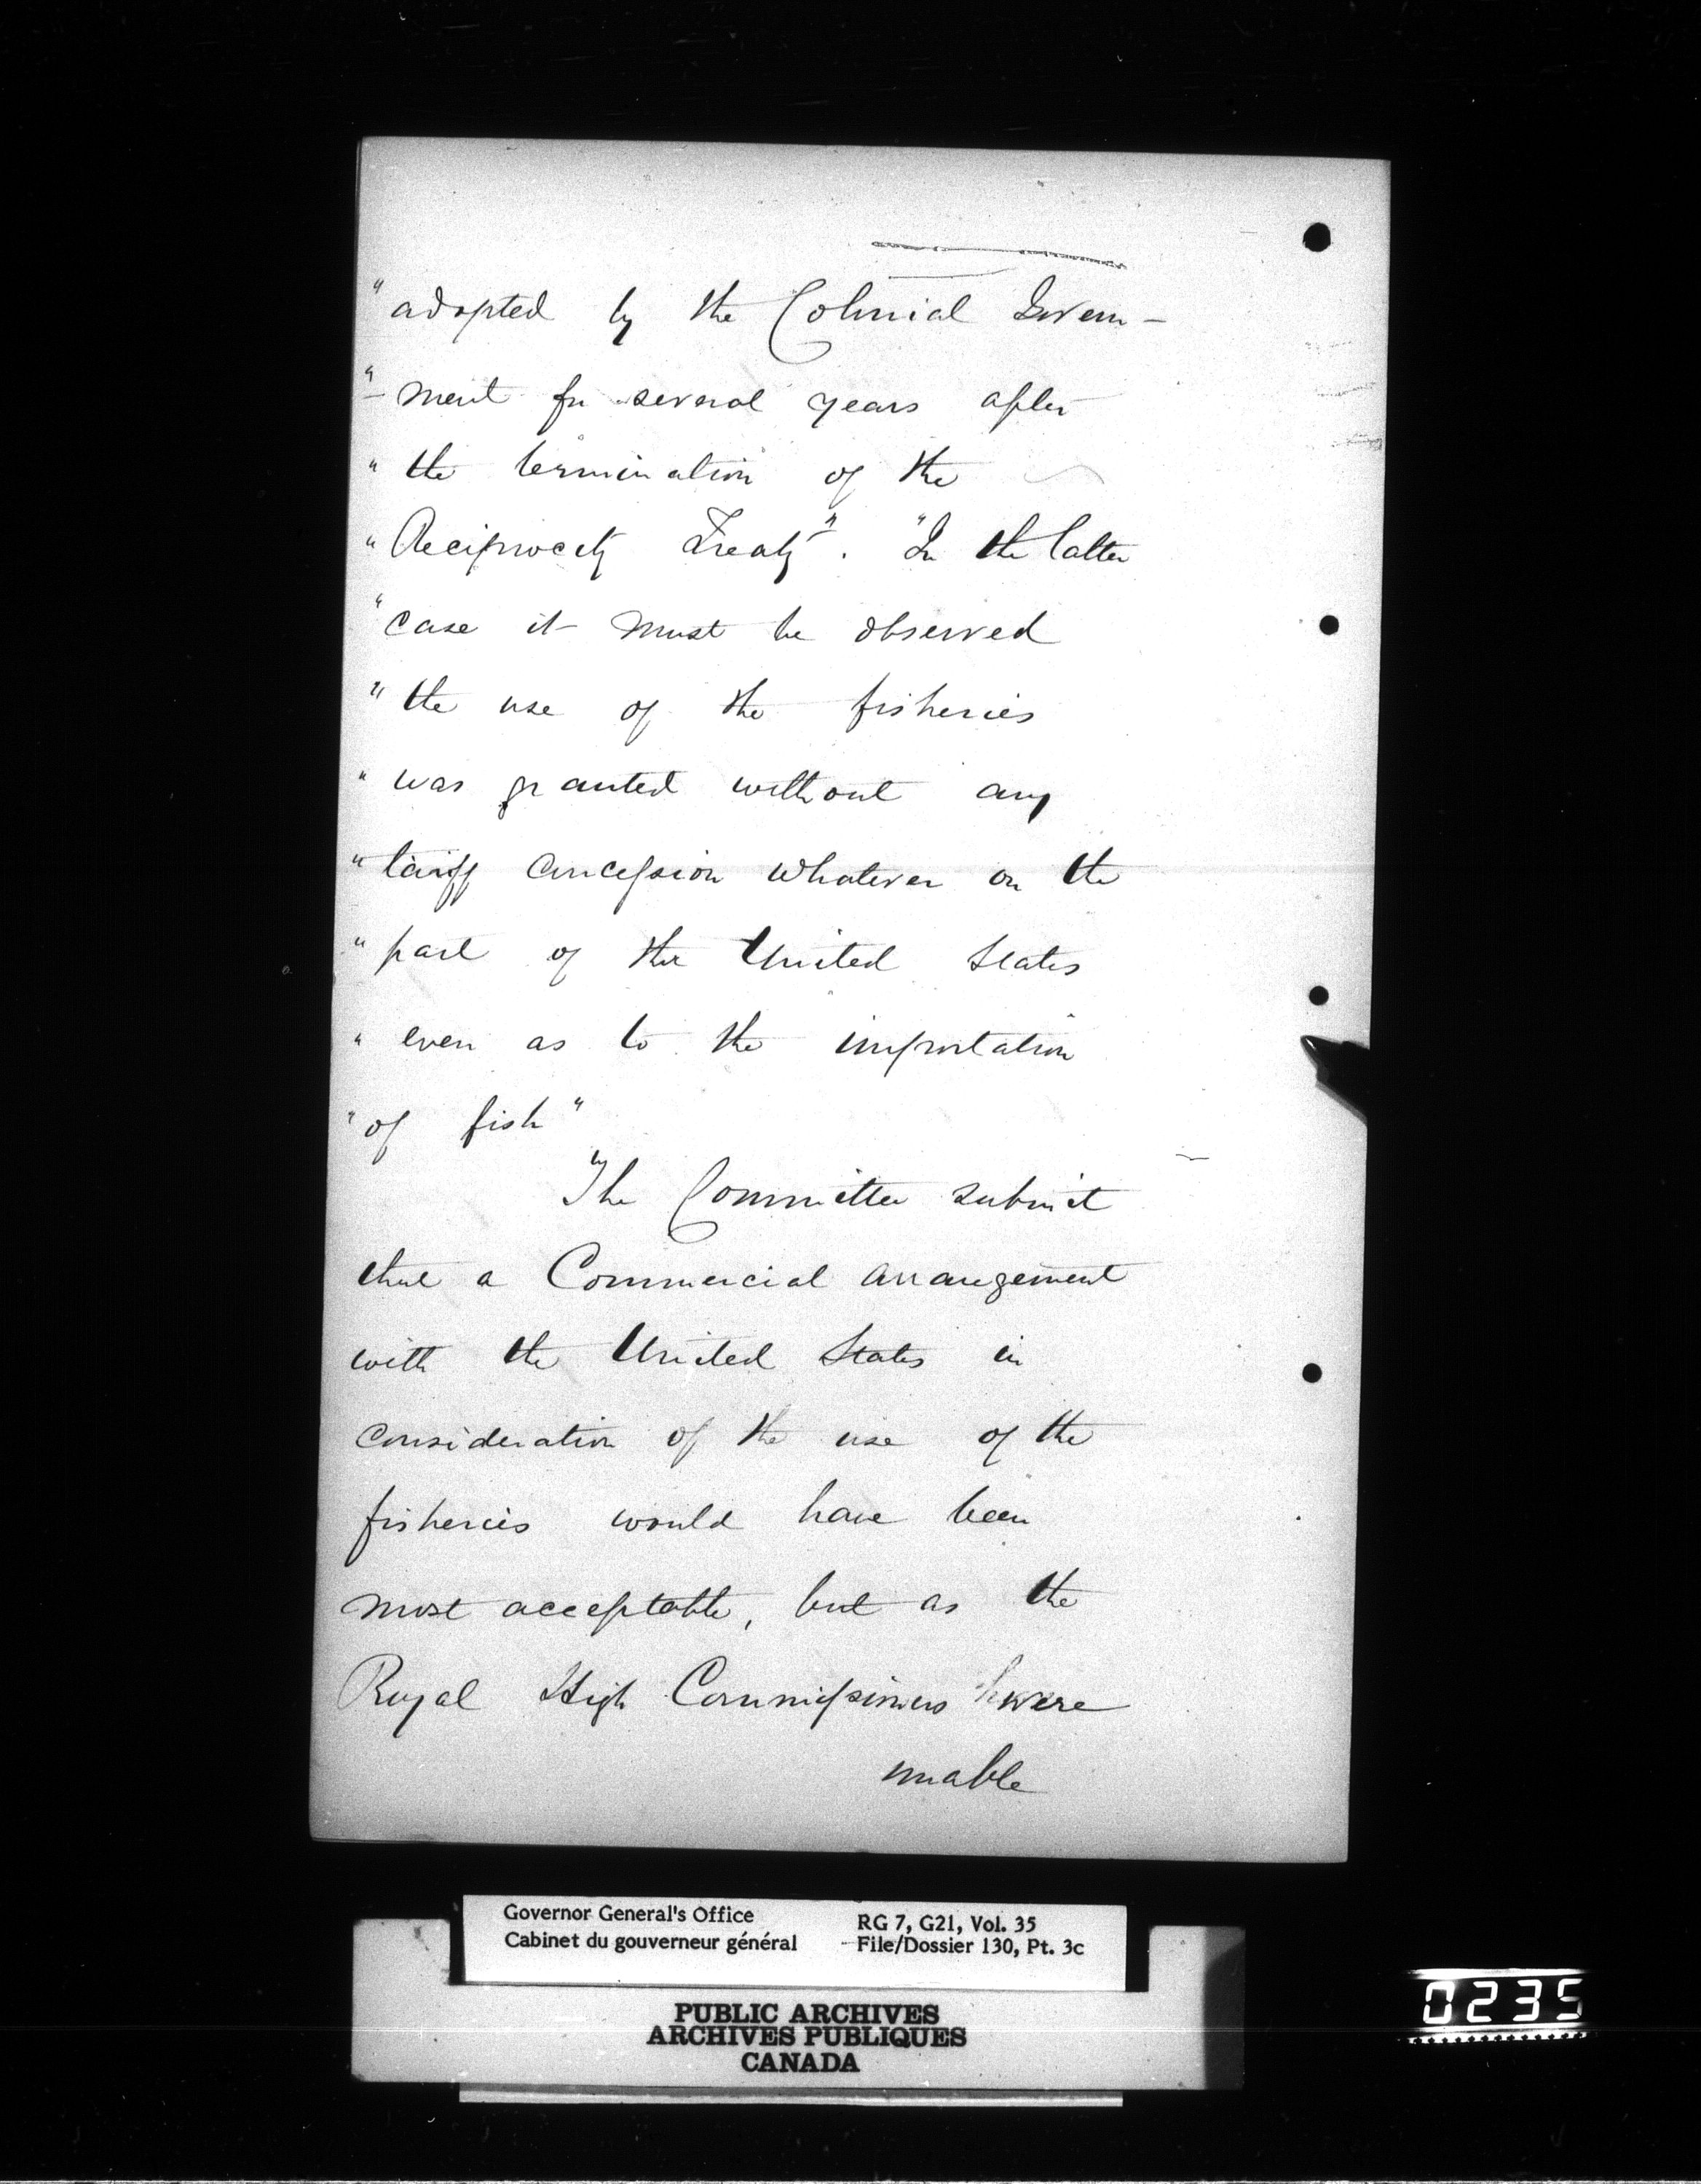 "adopted by the Colonial Govern-
"-ment for several years after
"the termination of the
"Reciprocity Treaty". "In the latter
"case it must be observed
"the use of the fisheries
"was granted without any
"tariff concession whatever on the
"part of the United States
"even as to the importation
"of fish"
The Committee submit
that a Commercial arrangement
with the United States in
consideration of the use of the
fisheries would have been
most acceptable, but as the
Royal High Commissioners were
unable
Governor General's Office
Cabinet du gouverneur général
RG 7, G21, Vol. 35
File/Dossier 130, Pt. 3c
PUBLIC ARCHIVES
ARCHIVES PUBLIQUES
CANADA
0235